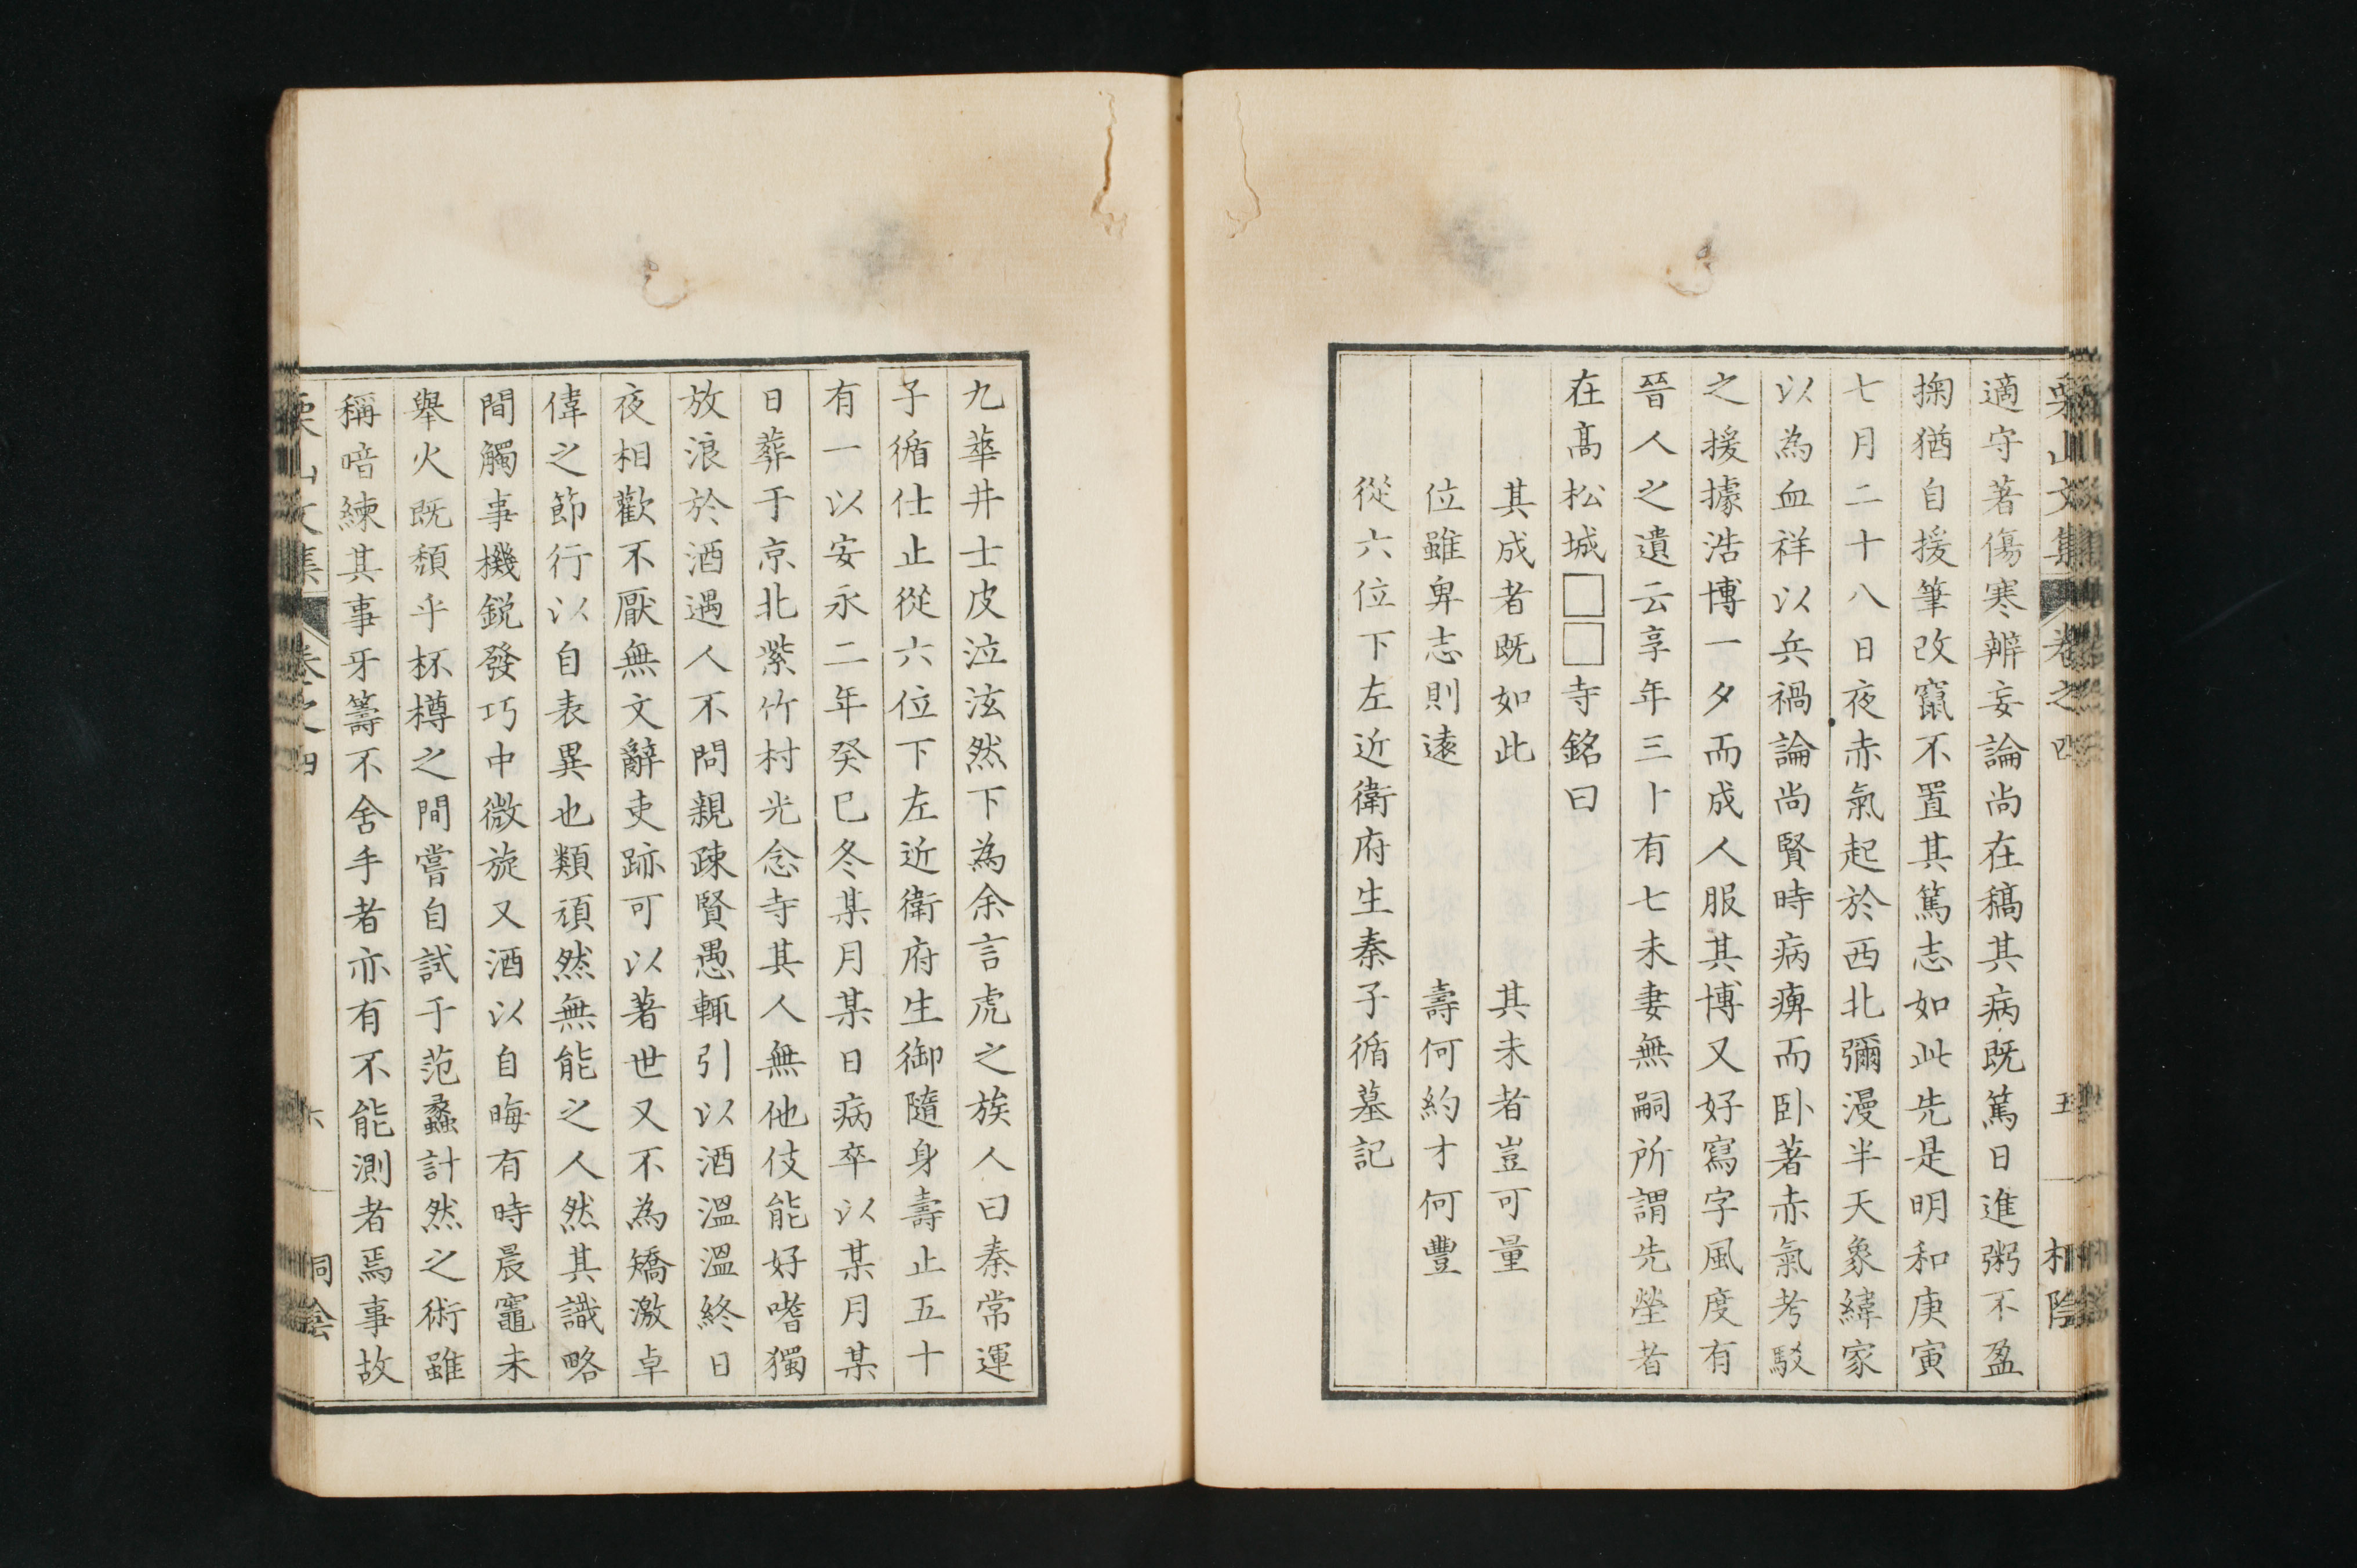 栗山文集 卷之四 五
適守著傷寒辨妄論尚在稿其病既篤日進粥不盈
掬猶自援筆改竄不置其篤志如此先是明和庚寅
七月二十八日夜赤氣起於西北彌漫半天象緯家
以為血祥以兵禍論尚賢時病痺而臥著赤氣考駁
之援據浩博一夕而成人服其博又好寫字風度有
晉人之遺云享年三十有七未妻無嗣所謂先塋者
在髙松城□□寺銘曰
其成者既如此 其未者豈可量
位雖卑志則遠 壽何約才何豐
從六位下左近衛府生秦子循墓記
九華井士皮泣泫然下為余言虎之族人曰秦常運
子循仕止從六位下左近衛府生御隨身壽止五十
有一以安永二年癸巳冬某月某日病卒以某月某
日葬于京北紫竹村光念寺其人無他伎能好嗜獨
放浪於酒遇人不問親疎賢愚輒引以酒溫溫終日
夜相歡不厭無文辭吏跡可以著世又不為矯激卓
偉之節行以自表異也類頑然無能之人然其識略
間觸事機鋭發巧中微旋又酒以自晦有時晨竈未
舉火既頽乎杯樽之間嘗自試于范蠡計然之術雖
稱喑練其事牙籌不舍手者亦有不能測者焉事故
栗山文集 卷之四 六